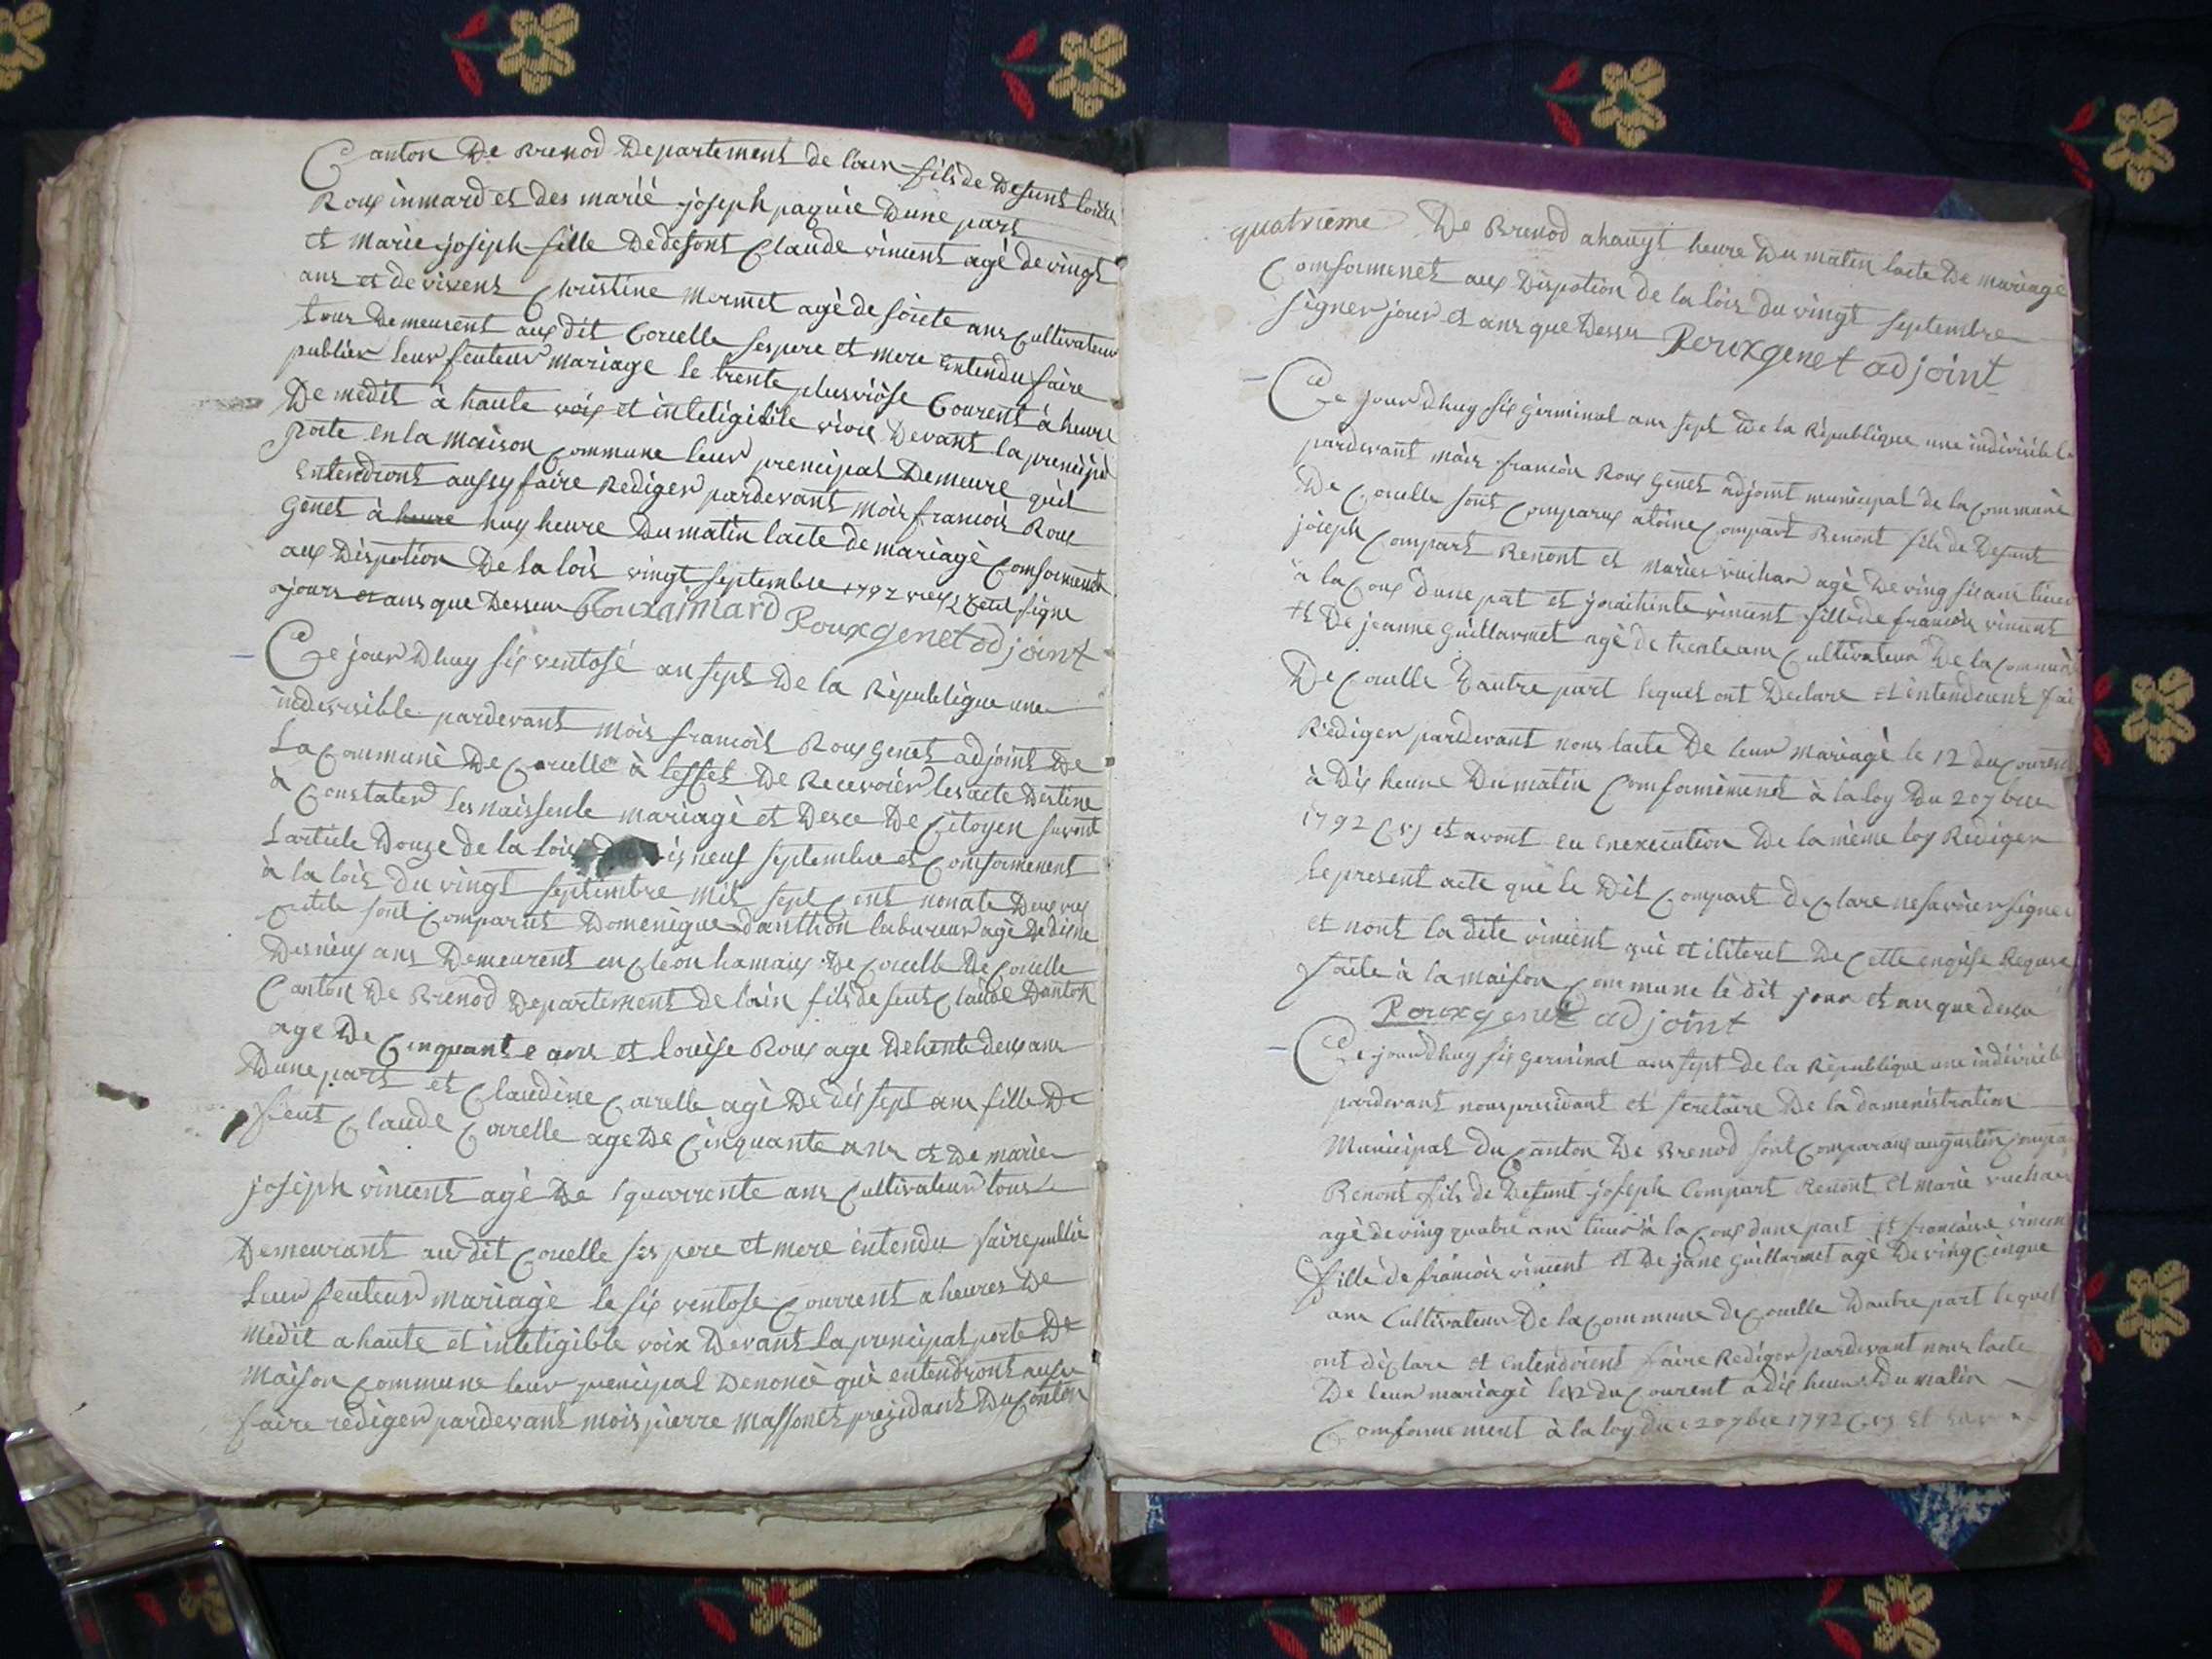 Canton De Brenod Departement de lain fils de Defunt louis
Roux inmard et des marié joseph paquie Dune part
et marie joseph fille De defont Claude vincent agé de vingt
ans et de vivens Christine mermet agé de soicte ans Cultivateur
tous Demeurent aux dit Corcelle ses pere et mere Entendu faire
publier leur feuteur mariage le trente pluviòse Courent à heure
De medit à haute voix et inteligibile vioie Devant la principe
porte en la maison Commune leur prencipal Demeure quil
Entendront aussy faire Rediger pardevant mois francois Roux
Genet à heure huy heure Du matin lacte de mariage Comformement
aux Dispotion De la lois vingt septembre 1792 signe
jours et ans que Desseur Rouxaimard Rouxgenet adjoint
Ce jour Dhuy six ventosé an sept De la Republique une
indivisible pardevant mois francois Roux Genet adjoint De
La Commune De Corcelle à leffet De Recevoier les acte Destine
à Constater les naissente mariagè et Desce De Citoyen suvent
Larticle Douze de la lois neuf septembre et Comformement
à la lois Du vingt septembre mil sept cent nonate Deux
sont Comparus Domenique danthon labureur agé De
Desneuf ans Demeurent en Cleon hamaux De Corcelle De Corcelle
Canton De Brenod Departement de lain fils de feut Claude Danton
age De Cinquante ans et loüise Roux age De trente deux ans
Dune part et Claudine Carelle agé De dix sept ans fille De
feut Claude Carelle age De Cinquante ans et De marie
joseph vincent agé De quarrente ans Cultivateur tous
Demeurant au dit Corcelle ses pere et mere entendu faire publie
Leur feuteur mariage le six ventose Courrent a heures De
medit a haute et inteligible voix Devant la principal porte De
Maison Commune leur prencipal Denonie qui entendront aussy
faire rediger pardevant mois pierre Massonet prezidant Du Conton
quatrieme De Brenod a heure Du matin lacte De mariage
Comformenet aux Dispotion de la lois du vingt septembre
signer jour et ans que Dessu Rouxgenet adjoint
Ce jour dhuy six germinal ans sept De la Republique une indivisible
pardevant mois francois Roux Genet adjoint municipal de la Commune
De Corcelle sont Comparux atoine Compart Renont fils de Defunt
joseph Compart Renont et Marie ruchar agè De ving six ans
à la Coux dune pat et vincent fille de francois vincent
et De jeanne Guillarmet agé de trente ans Cultivateur De la Commune
De Corcelle Dautre part lequel ont Declare et entendoient fai
Rediger pardevant nous lacte De leur mariagé le 12 du Courent
à Dix heure Du matin Comformèment à la loy Du 20 7bre
1792 et avont en enexecution De la mème loy Rediger
le present acte que le Dit Compart declare ne savoier signer
et nont la dite vincent què et iliteret De Cette
faite à la maison Commune le dit jour et an que dessu
Rouxgenet adjoint
Ce jourdhuy six germinal ans sept de la Republique une indivisible
pardevant nous presidant et secretaire De la damenistration
Municipal du Canton De Brenod sont Comparaux augustin Compar
Renont fils de Defunt joseph Compart Renont et Marie ruchar
agé de ving quatre ans à la Coux dune part et francoise vincen
fille de francois vincent et De jane Guillarmet agé De ving Cinque
ans Cultivateur De la Commune de Corcelle Dautre part lequel
ont declare et entendoient faire Rediger pardevant nous lacte
De leur mariagé le 12 du Courent a dix heure Du matin
Comformement à la loy du 20 7bre 1792